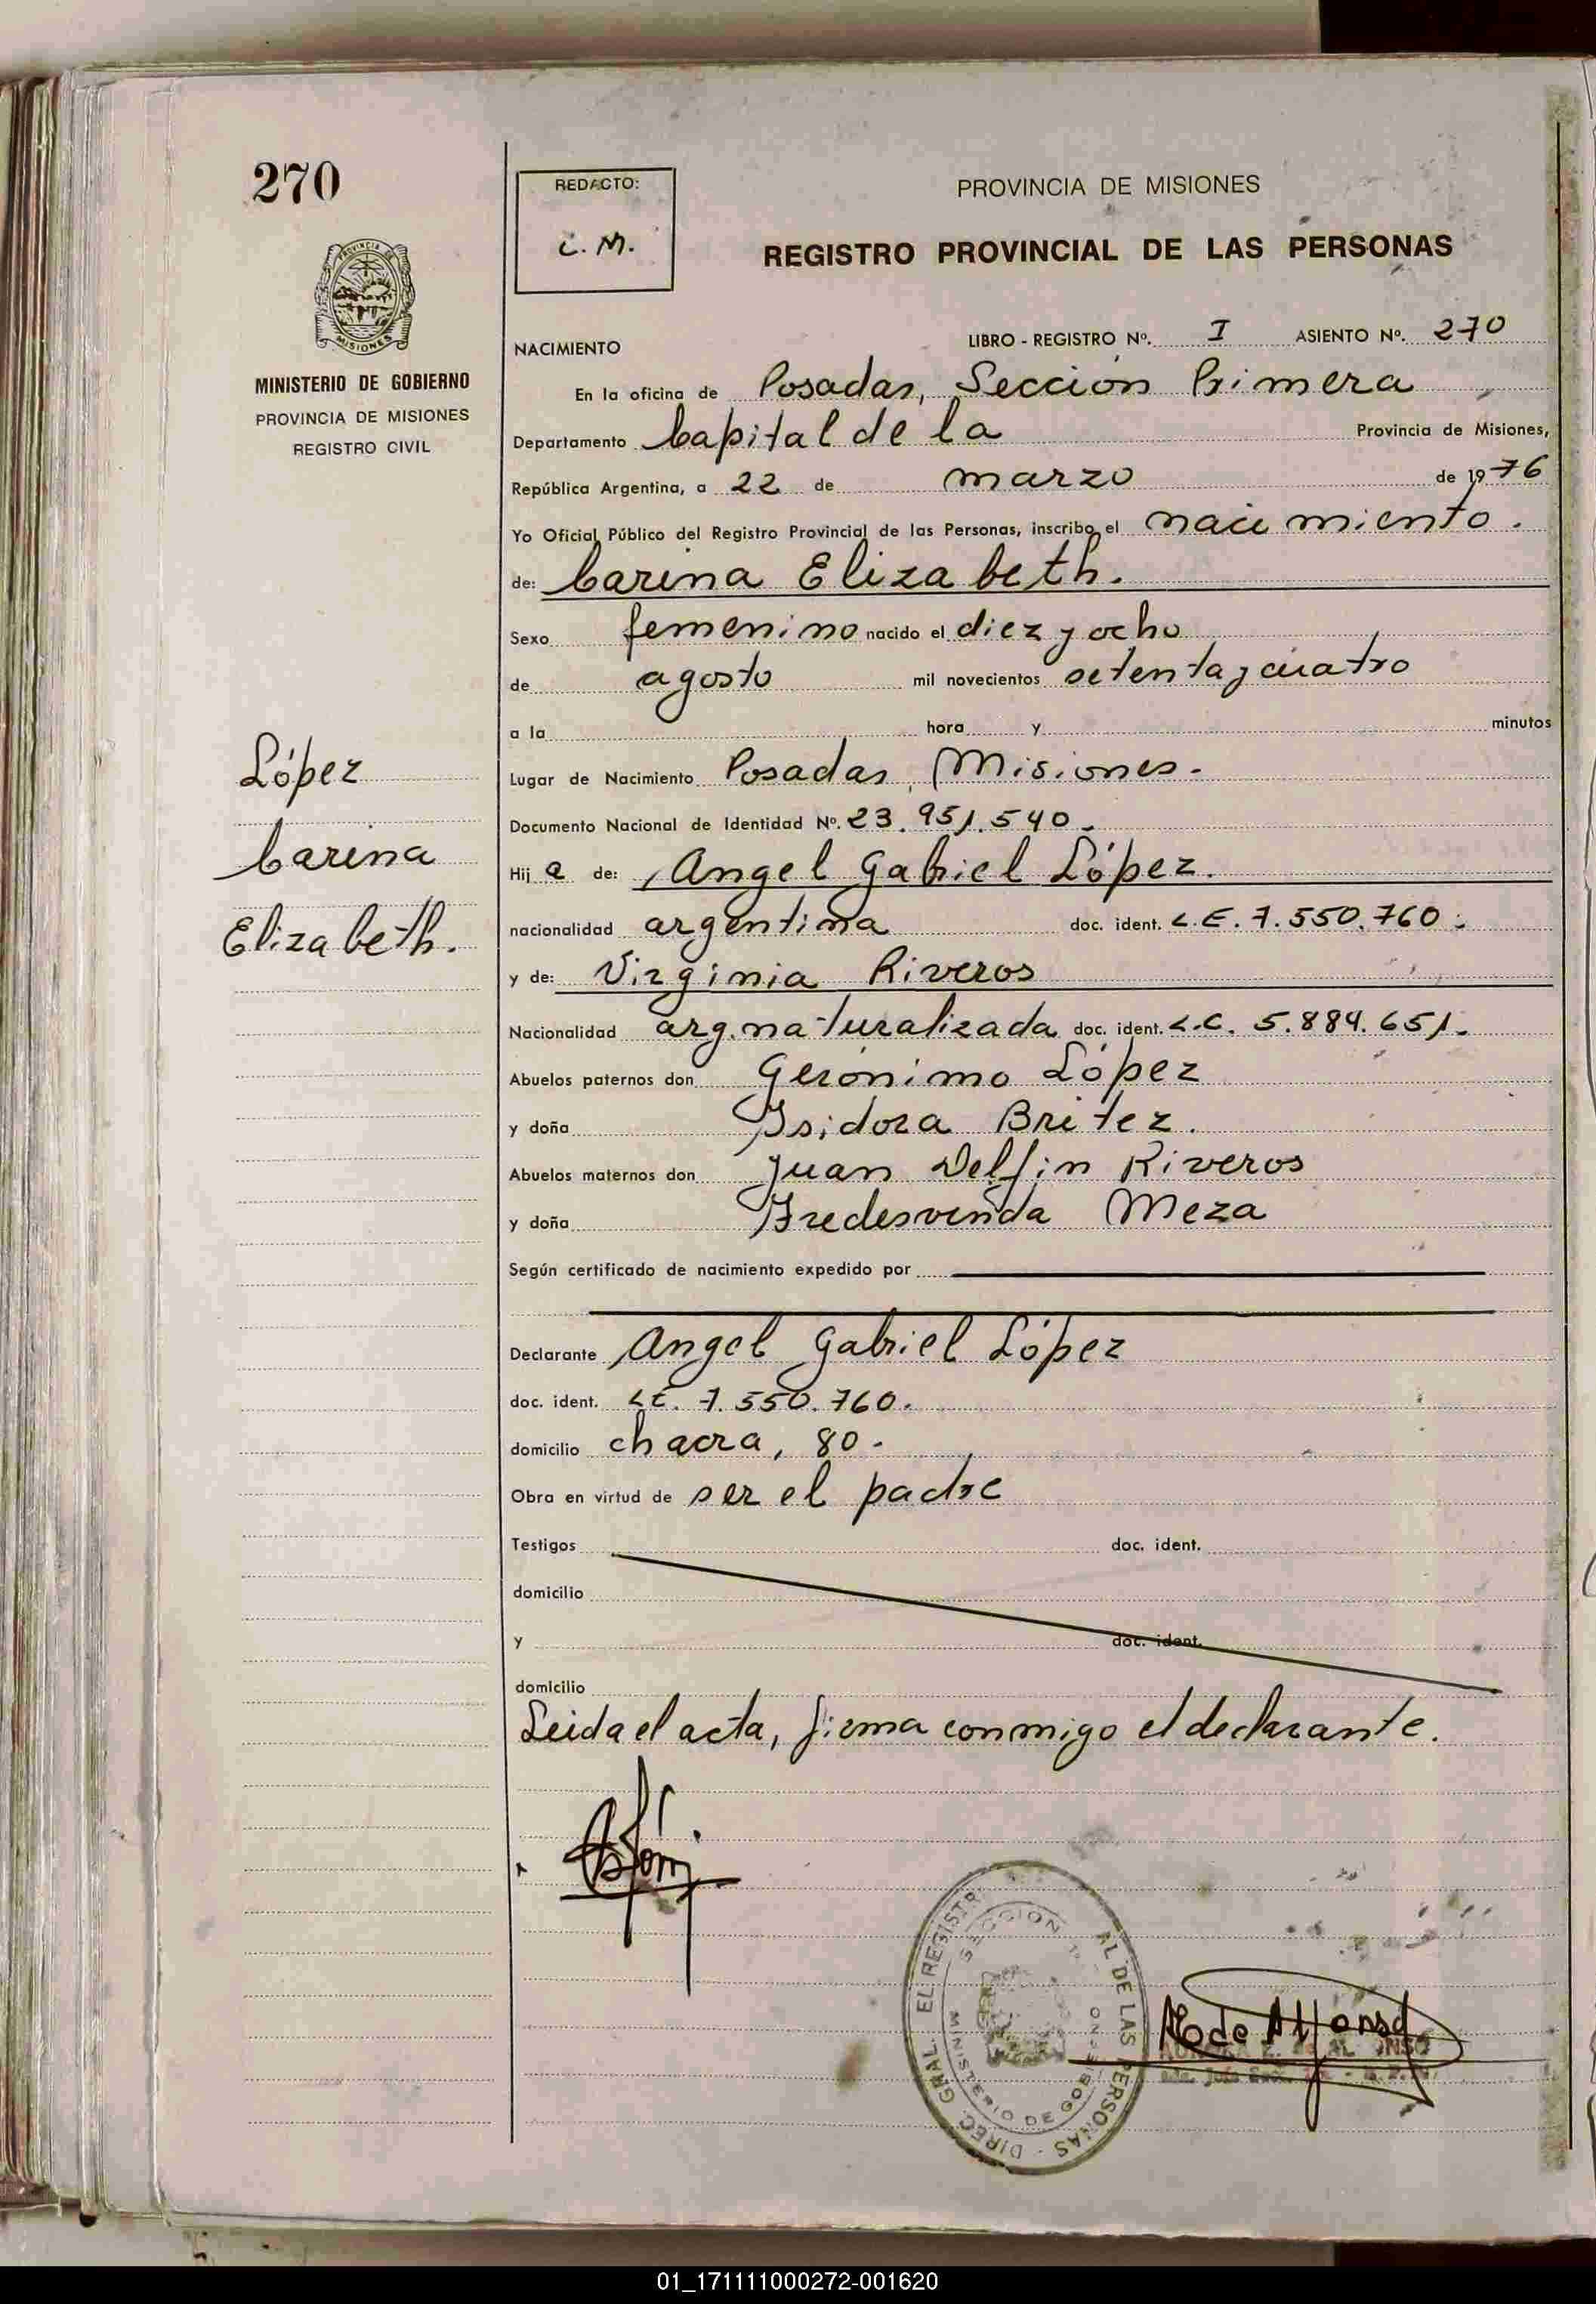 270
PROVINCIA
MISIONES
MINISTERIO DE GOBIERNO
PROVINCIA DE MISIONES
REGISTRO CIVIL
López
Carina
Elizabeth.
REDACTO:
C. M.
PROVINCIA DE MISIONES
REGISTRO PROVINCIAL DE LAS PERSONAS
NACIMIENTO LIBRO - REGISTRO Nº. I ASIENTO Nº. 270
En la oficina de Posadas, Sección Primera
Departamento Capital de la Provincia de Misiones,
República Argentina, a 22 de marzo de 1976
Yo Oficial Público del Registro Provincial de las Personas, inscribo el nacimiento.
de: Carina Elizabeth.
Sexo femenino nacido el diez y ocho
de agosto mil novecientos setenta y cuatro
a la hora y minutos
Lugar de Nacimiento Posadas, Misiones.
Documento Nacional de Identidad Nº. 23.951.540.
Hij a de: Angel Gabriel López.
nacionalidad argentina doc. ident. L.E. 7.550.760.
y de: Virginia Riveros
Nacionalidad arg. naturalizada doc. ident. L.C. 5.884.651.
Abuelos paternos don Gerónimo López
y doña Isidora Britez.
Abuelos maternos don Juan Delfin Riveros
y doña Fredesvinda Meza
Según certificado de nacimiento expedido por
Declarante Angel Gabriel López
doc. ident. L.E. 7.550.760.
domicilio chacra, 80.
Obra en virtud de ser el padre
Testigos doc. ident.
domicilio
y doc. ident.
domicilio
Leida el acta, firma conmigo el declarante.
DIREC. GRAL. EL REGISTR AL DE LAS PERSONAS
SECCION 1º
MINISTERIO DE GOBIERNO
de Alfonso
01_171111000272-001620